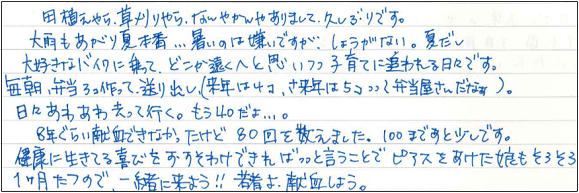 田植えやら、草刈りやら、なんやかんやありまして、久しぶりです。
大雨もあがり夏本番…暑いのは嫌いですが、しょうがない。夏だし
大好きなバイクに乗って、どこか遠くへと思いつつ子育てに追われる日々です。
毎朝、弁当3つ作って、送り出し、(来年は4コ、さ来年は5コって弁当屋さんだなぁ)。
日々あわあわ去って行く。もう40だよ…。
8年ぐらい献血できなかったけど80回を数えました。100まであと少しです。
健康に生きてる喜びをおすそわけできればっと言うことでピアスをあけた娘もそろそろ
1ヶ月たつので、一緒に来よう!!若者よ、献血しよう。